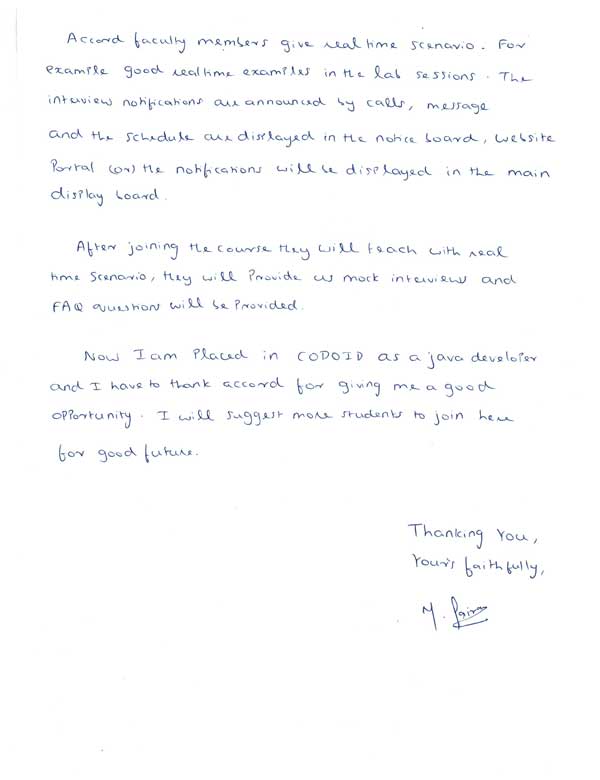 Accord faculty members give real time scenario. For
example good realtime examples in the lab sessions. The
interview notifications are announced by calls, message
and the schedule are displayed in the notice board, website
Portal (or) the notifications will be displayed in the main
display board.
After joining the course they will teach with real
time scenario, they will Provide us mock interviews and
FAQ question will be Provided.
Now I am Placed in CODOID as a java developer
and I have to thank accord for giving me a good
opportunity. I will suggest more students to join here
for good future.
Thanking You,
Your's faithfully,
M.